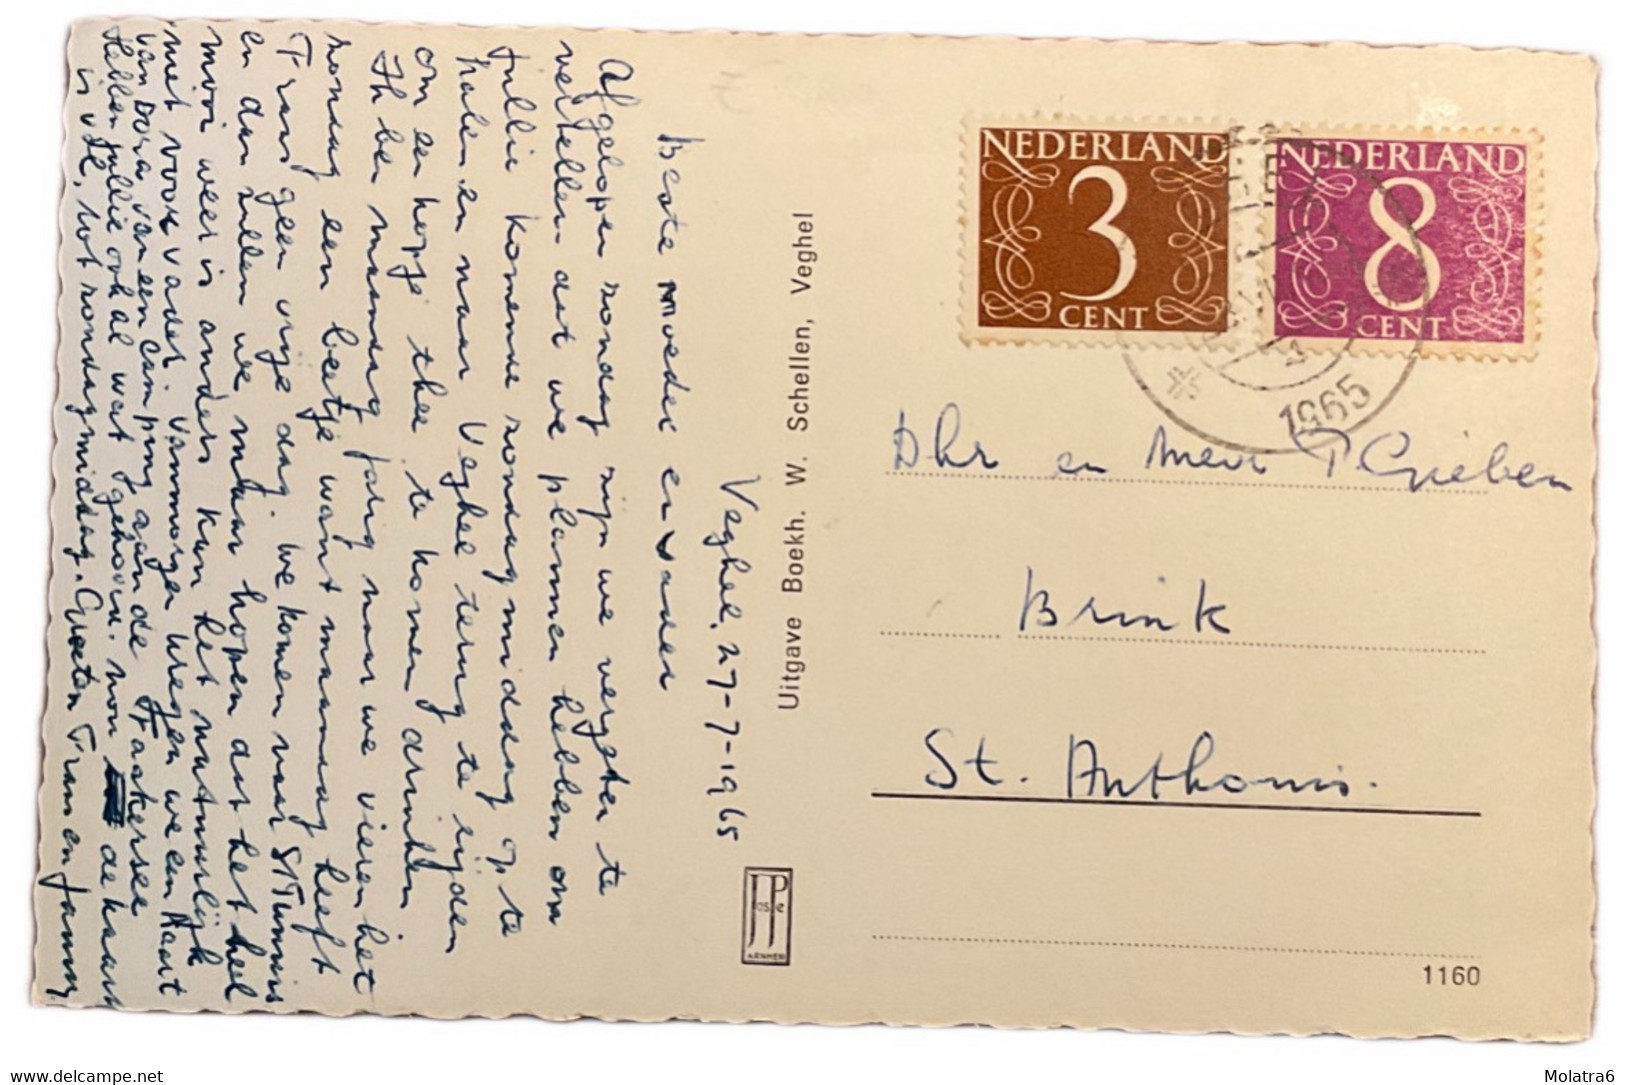 Veghel, 27-7-1965
Beste moeder en vader
Afgelopen zondag zijn we vergeten te
vertellen dat we plannen hebben om
jullie komende zondagmiddag op te
halen en naar Veghel terug te rijden
om een kopje thee te komen drinken
Ik ben maandag jarig maar we vieren het
zondag een beetje want maandag heeft
Frans geen vrije dag. We komen naar St Tunnis
en dan zullen we maar hopen dat het heel
mooi weer is anders kan het natuurlijk
niet voor vader. Vanmorgen kregen we een kaart
van Dora van een camping aan de
Hebben jullie ook al wat gehoord. de kaart
is vol, tot zondagmiddag. Groeten Frans en Jammy
Uitgave Boekh. W. Schellen, Veghel
JosPé
ARNHEM
NEDERLAND
3
CENT
NEDERLAND
8
CENT
1965
Dhr en Mevr P Grieben
Brink
St. Anthonis.
1160
www.delcampe.net
Molatra6